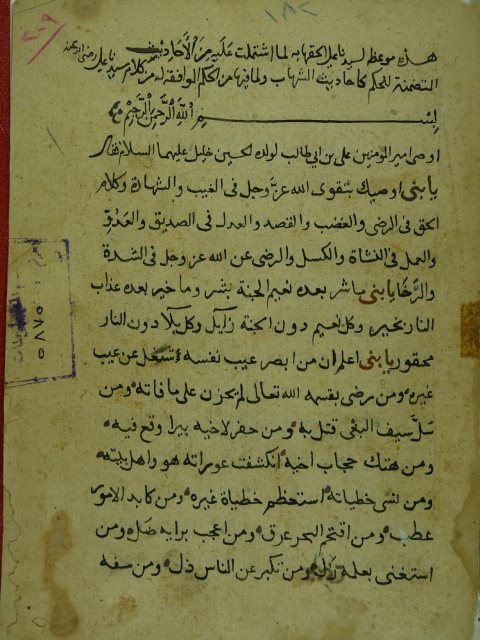 ١٨٢
هذه موعظه لسيدنا علي الحقها به لما اشتملت عليه من الأحاديث
المتضمنة للحكم كاحاديث الشهاب ولما فيها من الحكم الموافقة له من كلام سيدنا علي رضي الله عنه
بسم الله الرحمن الرحيم
اوصى امير المومنين علي بن ابي طالب لولده الحسين خليل عليهما السلام فقال
يا بنى اوصيك بتقوى الله عز وجل فى الغيب والشهادة وكلام
الحق فى الرضى والغضب والقصد والعدل فى الصديق والعدو
والعمل فى النشاة والكسل والرضى عن الله عز وجل فى الشدة
والرخا يا بنى ما شر بعده نعيم الجنة بشر وما خير بعده عذاب
النار بخير وكل نعيم دون الجنة زايل وكل بلا دون النار
محقور يا بنى اعلم ان من ابصر عيب نفسه اشتغل عن عيب
غيره ومن رضى بقسمه الله تعالى لم يحزن على ما فاته ومن
سل سيف البغى قتل به ومن حفر لاخيه بيرا وقع فيه
ومن هتك حجاب اخيه انكشفت عوراته هو واهل بيته
ومن نسى خطياته استعظم خطياة غيره ومن كابد الامور
عطب ومن اقتحم البحر غرق ومن اعجب برايه ضل ومن
استغنى بعمله زل ومن تكبر عن الناس ذل ومن سفه
٥٨٧٥